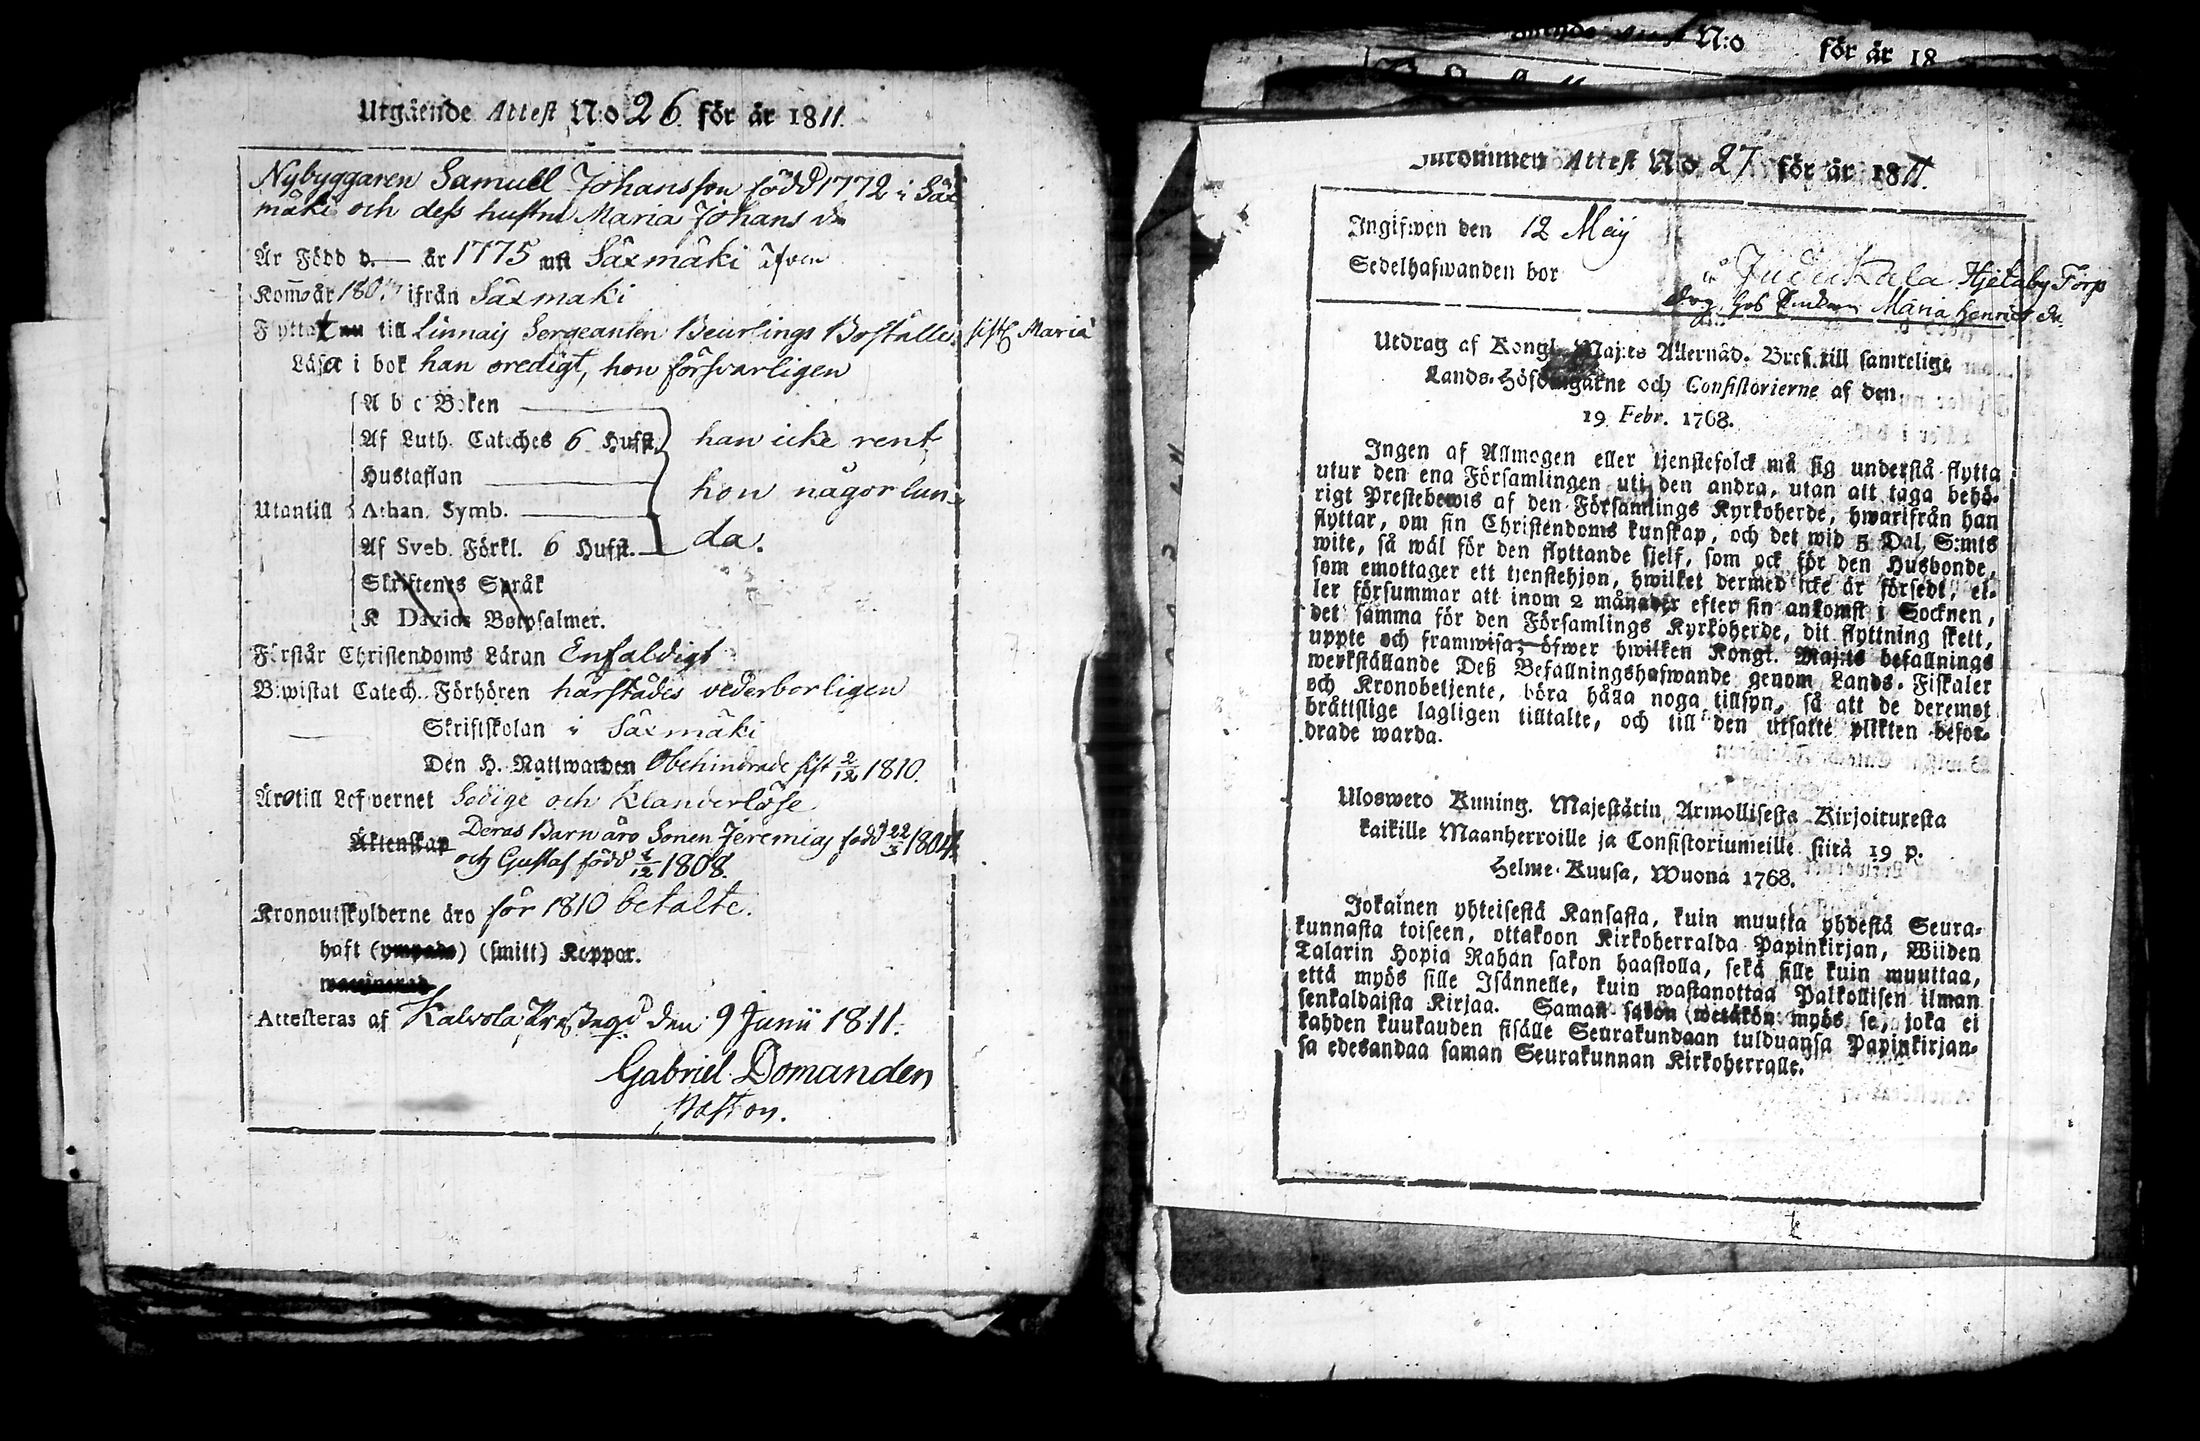 Utgående Attest N:o 26. för år 1811.
Nybyggaren Samuel Johansson född 1772 i Säx
mäki och dess hustru Maria Johans dr
Är Född d. — år 1775 uti Säxmäki äfven
Kom̄o år 180 ifrån Säxmäki
Flytta nu till Linnais Sergeanten Beurlings Boställe,
Läsa i bok han oredigt, hon försvarligen
A b c Boken
Af Luth. Cateches 6 Hufst. han icke rent,
Hustaflan
hon någorlun-
Utantill Athan. Symb.
Af Sveb. Förkl. 6 Hufst. da.
Skriftenes Språk
K Davids Botpsalmer.
Förstår Christendoms Läran Enfaldigt
Bewistat Catech. Förhören härstädes vederborligen
Skriftskolan i Säxmäki
Den H. Nattwarden Obehindrade sist 2/12 1810.
Äro till Lefwernet Sedige och Klanderlöse
Äktenskap Deras Barn äro Sonen Jeremias född 22/3 1804
och Gustaf född 1/12 1808.
Kronoutskylderne äro för 1810 betalte.
haft (ympade) (smitt) Koppor.
Attesteras af Kalvola Prestegd den 9 Junii 1811.
Gabriel Domanden
Pastor.
Maria
N:o för år 18
Inkommen Attest N:o 27 för år 1811.
Ingifwen den 12 Maij
Sedelhafwanden bor å Judukala Hjelaby Torp
Maria Henrics dr.
Utdrag af Kongl. Maj:ts Allernåd. Bref till samtelige
Lands-Höfdingarne och Consistorierne af den
19 Febr. 1768.
Ingen af Allmogen eller tjenstefolck må sig understå flytta
utur den ena Församlingen uti den andra, utan att taga behö-
rigt Prestebewis af den Församlings Kyrkoherde, hwarifrån han
flyttar, om sin Christendoms kunskap, och det wid 5 Dal. S:mts
wite, så wäl för den flyttande sjelf, som ock för den Husbonde,
som emottager ett tjenstehjon, hwilket dermed icke är försedt, el-
ler försummar att inom 2 månader efter sin ankomst i Socknen,
det samma för den Församlings Kyrkoherde, dit flyttning skett,
uppte och framwisa; öfwer hwilken Kongl. Maj:ts befallnings
werkställande Deß Befallningshafwande genom Lands-Fiskaler
och Kronobetjente, böra hålla noga tillsyn, så att de deremot
brättslige lagligen tilltalte, och till den utsatte plikten befor-
drade warda.
Uloswero Kuning. Majestätin Armollisesta Kirjoituxesta
kaikille Maanherroille ja Consistoriumeille siitä 19 p.
Helme-Kuusa, Wuona 1768.
Jokainen yhteisestä Kansasta, kuin muutta yhdestä Seura-
kunnasta toiseen, ottakoon Kirkoherralda Papinkirjan, Wiiden
Talarin Hopia Rahan sakon haastolla, sekä sille kuin muuttaa,
että myös sille Isännelle, kuin wastanottaa Palkollisen ilman
senkaldaista Kirjaa. Saman sakon wetäkön myös se, joka ei
kahden kuukauden sisälle Seurakundaan tulduansa Papinkirjan-
sa edesandaa saman Seurakunnan Kirkoherralle.